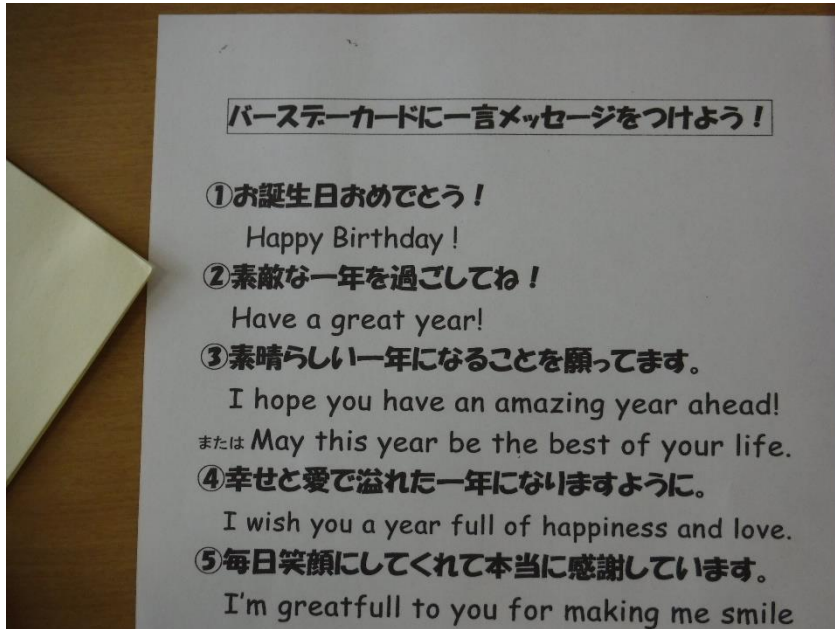 バースデーカードに一言メッセージをつけよう！
①お誕生日おめでとう！
Happy Birthday !
②素敵な一年を過ごしてね！
Have a great year!
③素晴らしい一年になることを願ってます。
I hope you have an amazing year ahead!
または May this year be the best of your life.
④幸せと愛で溢れた一年になりますように。
I wish you a year full of happiness and love.
⑤毎日笑顔にしてくれて本当に感謝しています。
I'm greatfull to you for making me smile